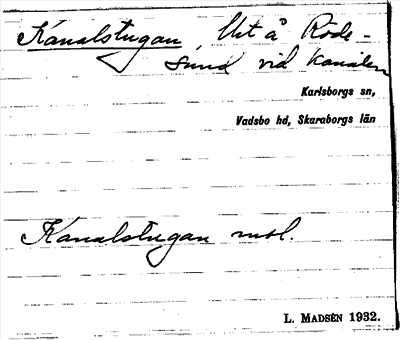 Kanalstugan, Ut å Röde-
sund vid kanalen
Karlsborgs sn,
Vadsbo hd, Skaraborgs län
Kanalstugan
L. MADSÉN 1932.